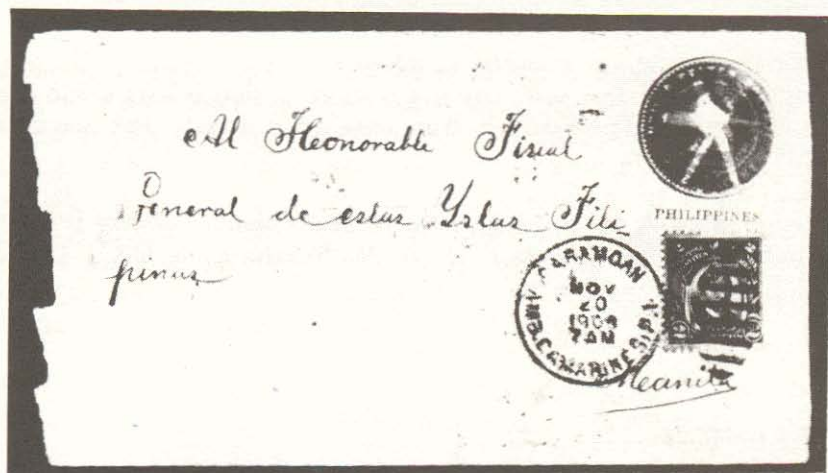 Al Heonorable Fiscal
General de estas Yslas Fili
pinas
PHILIPPINES
CARAMOAN
NOV
20
1908
7AM
AMB. CAMARINES, P.I.
Meanila